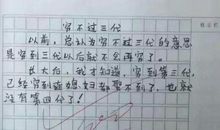 穷不过三代
以前，总认为穷不过三代的意思
是穷到三代以后就不会再穷了。
长大后，我才知道，穷到第三代，
已经穷到连媳妇都娶不到了，也就
没有第四代了！